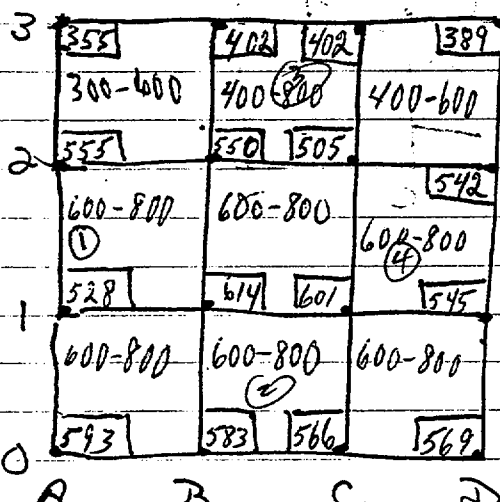 3
355 402 402 389
300-600 400-800 3 400-600
555 550 505
2
542
600-800 600-800
1 600-800
4
528 614 601 545
1
600-800 600-800 600-800
2
593 583 566 569
0
A B C D